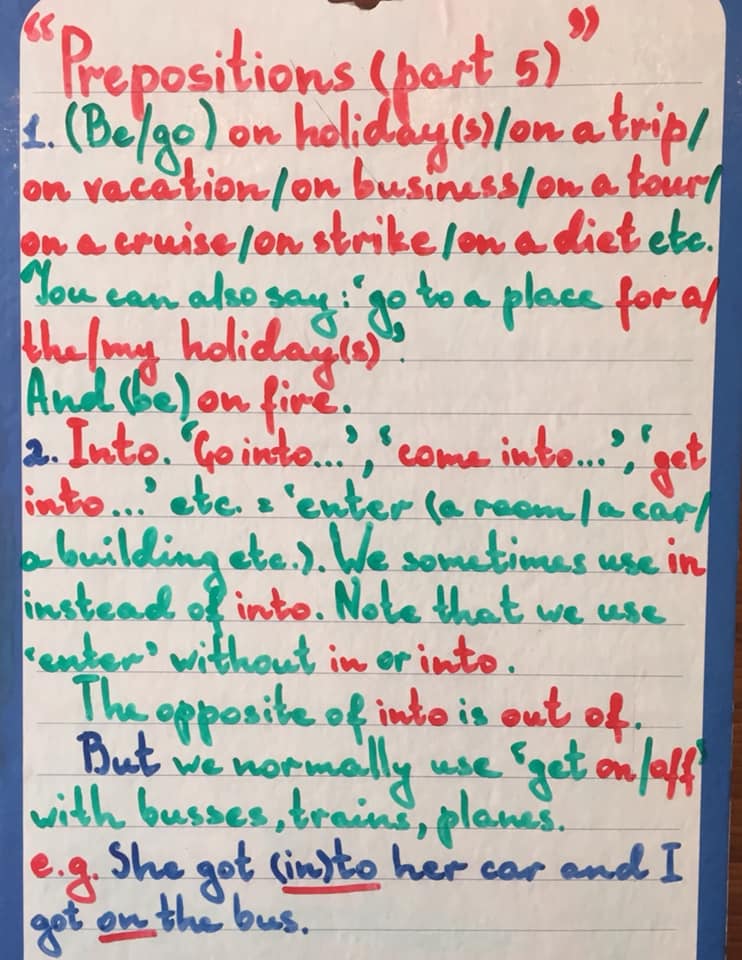 "Prepositions (part 5)"
1. (Be/go) on holiday(s)/on a trip/
on vacation/on business/on a tour/
on a cruise/on strike/on a diet etc.
You can also say: 'go to a place for a/
the/my holiday(s)'.
And (be) on fire.
2. Into. 'Go into...', 'come into...', 'get
into...' etc. = 'enter (a room/a car/
a building etc.). We sometimes use in
instead of into. Note that we use
'enter' without in or into.
The opposite of into is out of.
But we normally use 'get on/off'
with busses, trains, planes.
e.g. She got (in)to her car and I
got on the bus.